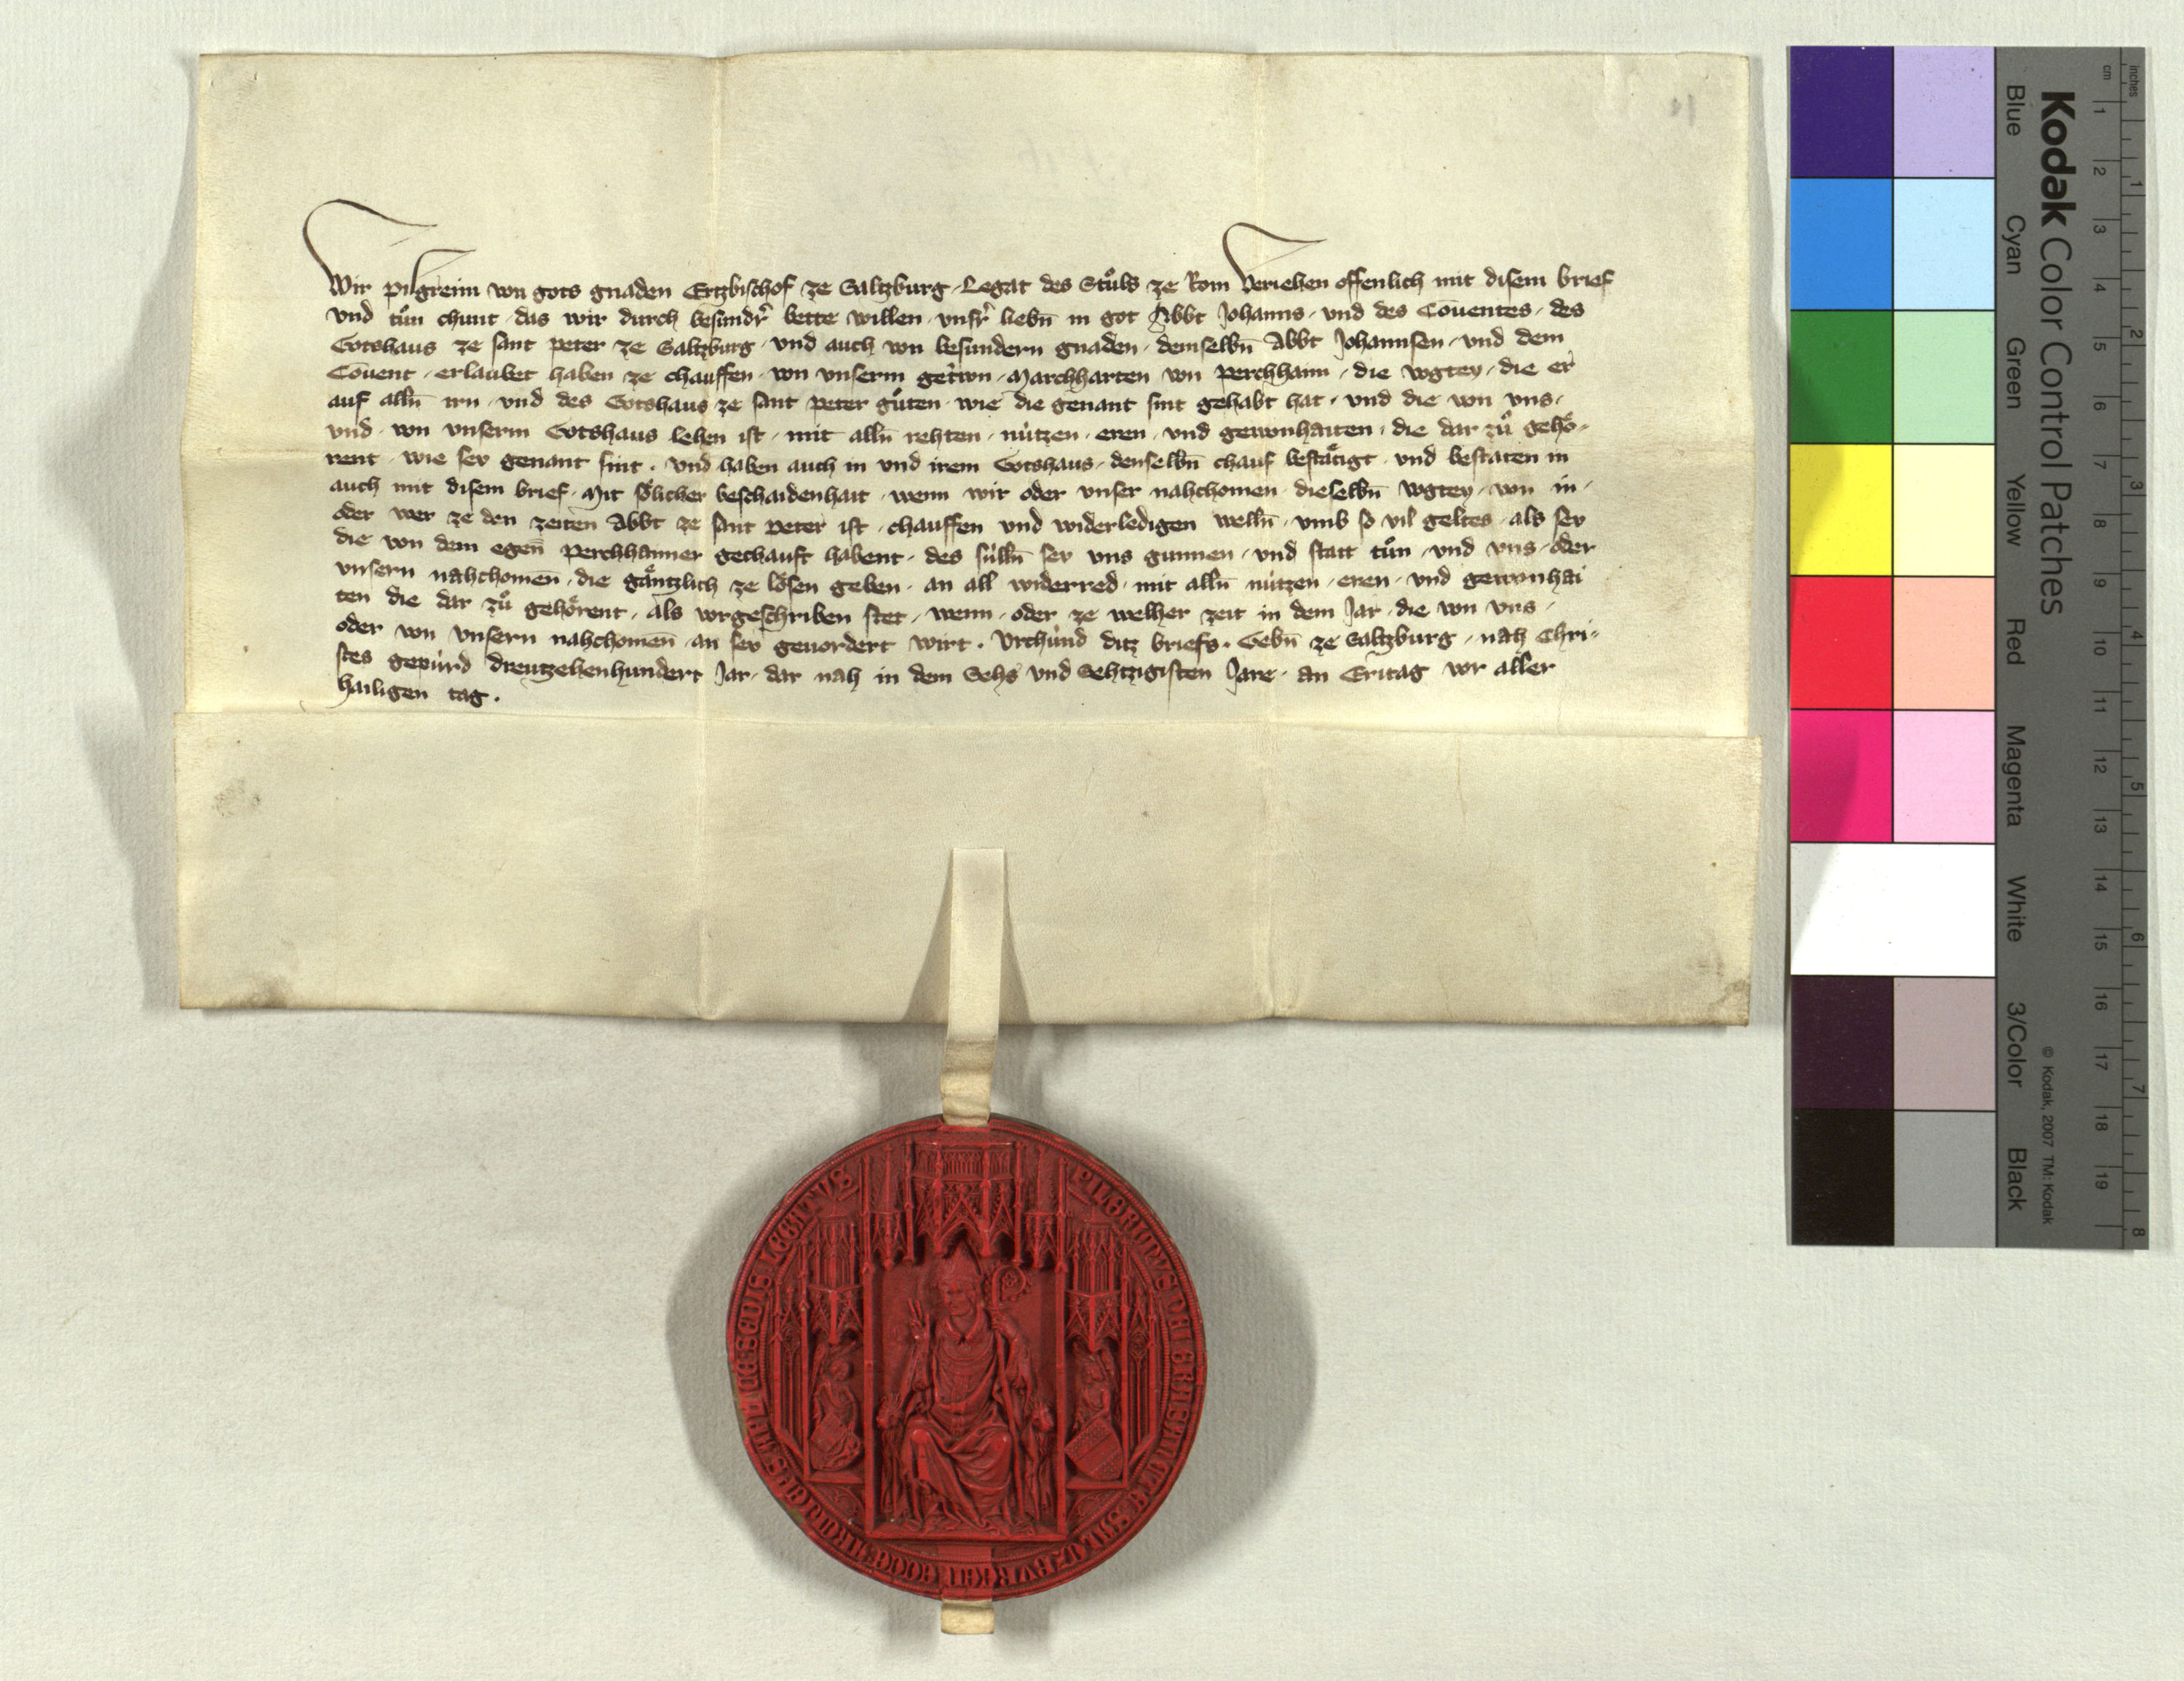 Wir pilgreim von gots gnaden Ertzbischof ze Saltzburg Legat des Stuͦls ze Rom Veriehen offenlich mit disem brief
vnd tuͦn chunt das wir durch besundr̄ bette willen vnsr̄ liebn̄ in got Abbt Johanns vnd des Couentes des
Gotshaus ze sant peter ze Saltzburg vnd auch von besundern gnaden demselbn̄ Abbt Johannsen vnd dem
Couent erlaubet haben ze chauffen von vnserm getrwn Marchharten von perchhaim die vogtey die er
auf alln̄ irn vnd des Gotshaus ze sant peter guͤten wie die genant sint gehabt hat vnd die von vns
vnd von vnserm Gotshaus lehen ist mit alln̄ rehten nützen eren vnd gewonhaiten die dar zuͦ gehoͤ-
rent wie sey genant sint. vnd haben auch in vnd irem Gotshaus denselbn̄ chauf bestaͤtigt vnd bestaten in
auch mit disem brief Mit soͤlicher beschaidenhait wenn wir oder vnser nahchomen dieselbn̄ vogtey von in
oder wer ze den zeiten Abbt ze sant peter ist chauffen vnd widerledigen welln̄ vmb so vil geltes als sey
die von dem egen̄ perchhaimer gechauft habent des sülln̄ sey vns gunnen vnd statt tuͦn vnd vns oder
vnsern nahchomen̄ die gaͤntzlich ze loͤsen geben an all widerred mit alln̄ nützen eren vnd gewonhai
ten die dar zuͦ gehoͤrent als vorgeschriben stet wenn oder ze welher zeit in dem Jar die von vns
oder von vnsern nahchomen̄ an sey geuordert wirt. Vrchünd ditz briefs. Gebn̄ ze Saltzburg nah Chri-
stes gepürd dreutzehenhundert Jar dar nah in dem Sehs vnd Sehtzigisten Jare an Eritag vor aller
hailigen tag.
PILGRIMVS DEI GRACIA SALZBVRGEN SEDIS LEGATVS
Kodak Color Control Patches
Blue Cyan Green Yellow Red Magenta White 3/Color Black
© Kodak, 2007 TM: Kodak
cm 1 2 3 4 5 6 7 8 9 10 11 12 13 14 15 16 17 18 19
inches 1 2 3 4 5 6 7 8